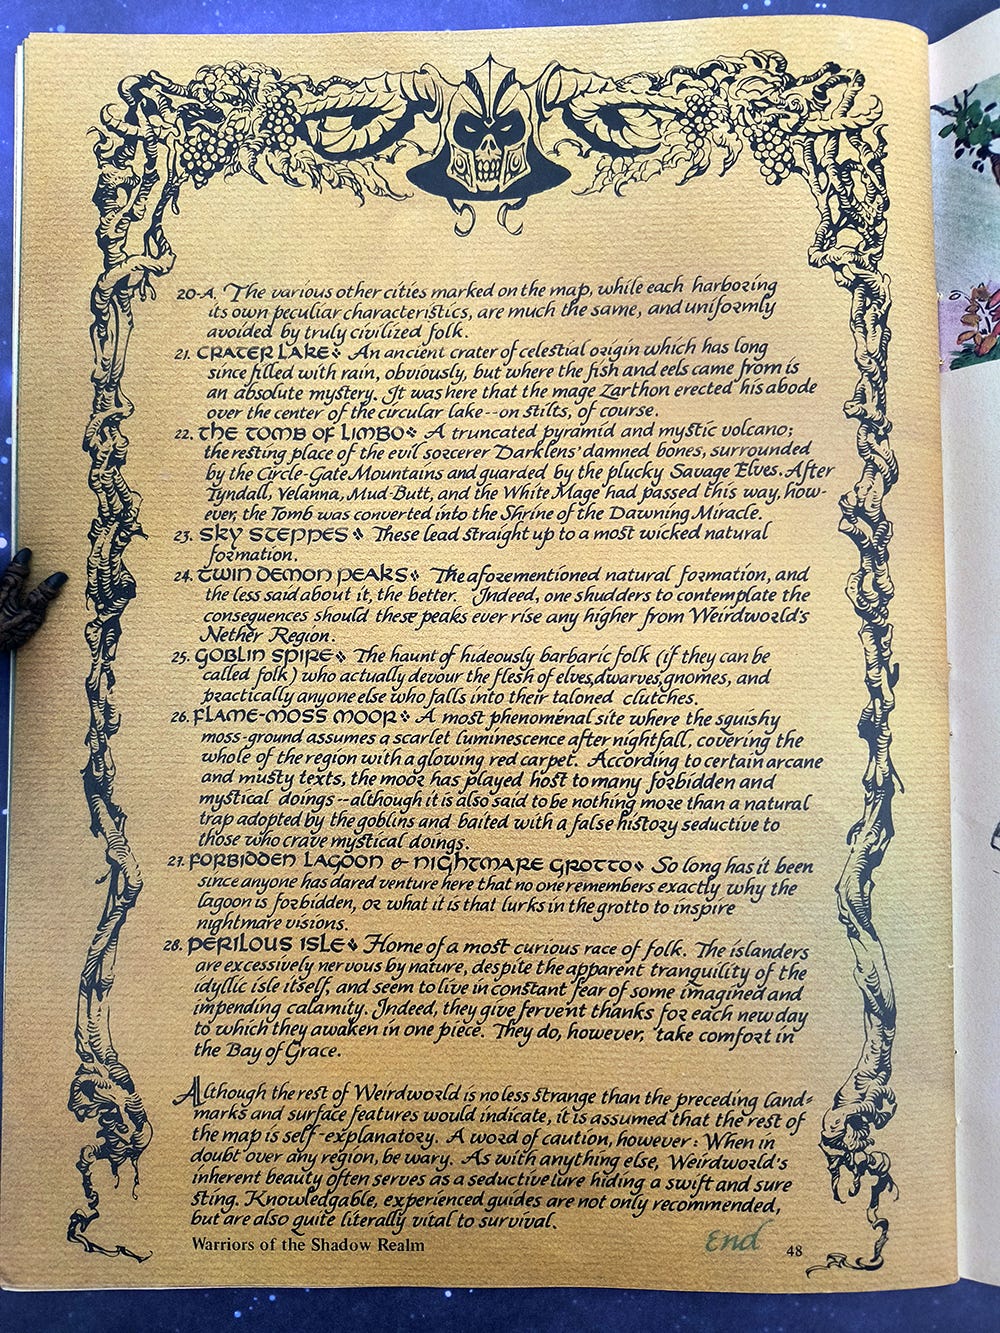 20-A. The various other cities marked on the map, while each harboring
its own peculiar characteristics, are much the same, and uniformly
avoided by truly civilized folk.
21. CRATER LAKE❖ An ancient crater of celestial origin which has long
since filled with rain, obviously, but where the fish and eels came from is
an absolute mystery. It was here that the mage Zarthon erected his abode
over the center of the circular lake--on stilts, of course.
22. THE TOMB OF LIMBO❖ A truncated pyramid and mystic volcano;
the resting place of the evil sorcerer Darklens' damned bones, surrounded
by the Circle-Gate Mountains and guarded by the plucky Savage Elves. After
Tyndall, Velanna, Mud-Butt, and the White Mage had passed this way, how-
ever, the Tomb was converted into the Shrine of the Dawning Miracle.
23. SKY STEPPES❖ These lead straight up to a most wicked natural
formation.
24. TWIN DEMON PEAKS❖ The aforementioned natural formation, and
the less said about it, the better. Indeed, one shudders to contemplate the
consequences should these peaks ever rise any higher from Weirdworld's
Nether Region.
25. GOBLIN SPIRE❖ The haunt of hideously barbaric folk (if they can be
called folk) who actually devour the flesh of elves, dwarves, gnomes, and
practically anyone else who falls into their taloned clutches.
26. FLAME-MOSS MOOR❖ A most phenomenal site where the squishy
moss-ground assumes a scarlet luminescence after nightfall, covering the
whole of the region with a glowing red carpet. According to certain arcane
and musty texts, the moor has played host to many forbidden and
mystical doings--although it is also said to be nothing more than a natural
trap adopted by the goblins and baited with a false history seductive to
those who crave mystical doings.
27. FORBIDDEN LAGOON & NIGHTMARE GROTTO❖ So long has it been
since anyone has dared venture here that no one remembers exactly why the
lagoon is forbidden, or what it is that lurks in the grotto to inspire
nightmare visions.
28. PERILOUS ISLE❖ Home of a most curious race of folk. The islanders
are excessively nervous by nature, despite the apparent tranquility of the
idyllic isle itself, and seem to live in constant fear of some imagined and
impending calamity. Indeed, they give fervent thanks for each new day
to which they awaken in one piece. They do, however, take comfort in
the Bay of Grace.
Although the rest of Weirdworld is no less strange than the preceding land-
marks and surface features would indicate, it is assumed that the rest of
the map is self-explanatory. A word of caution, however: When in
doubt over any region, be wary. As with anything else, Weirdworld's
inherent beauty often serves as a seductive lure hiding a swift and sure
sting. Knowledgable, experienced guides are not only recommended,
but are also quite literally vital to survival.
Warriors of the Shadow Realm End 48